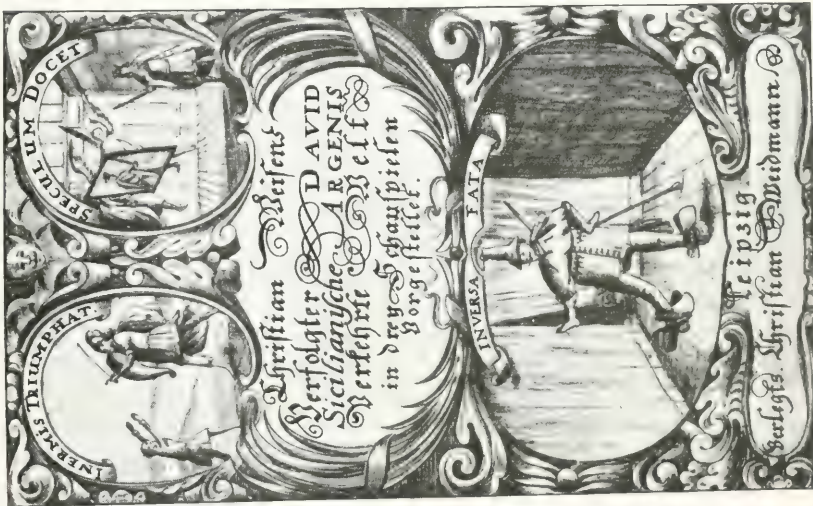 INERMIS TRIUMPHAT.
SPECULUM DOCET
Christian Weisens
Verfolgter DAVID
Sicilianische ARGENIS
Verkehrte Welt
in drey Schauspielen
vorgestellet.
INVERSA FATA
Leipzig
Verlegts. Christian Weidmann